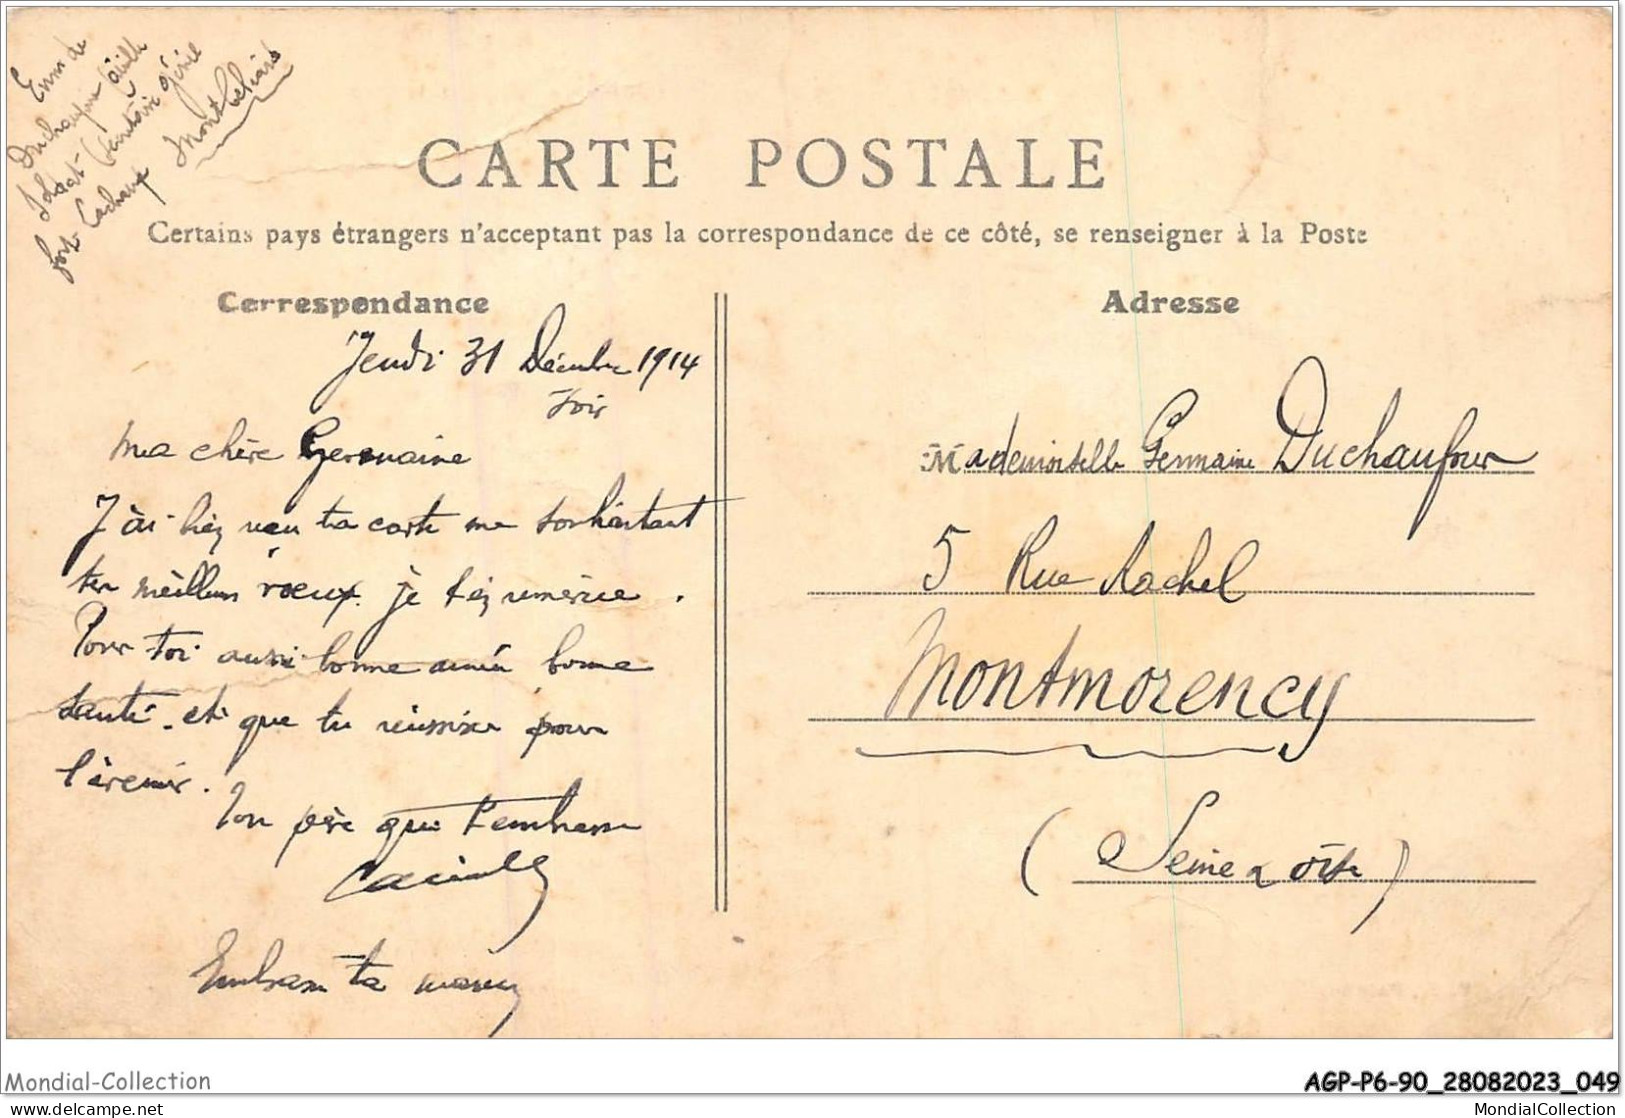 Envoi de
Duchaufour Camille
Soldat Sanitaire génie
fort Lachaux Montbéliard
CARTE POSTALE
Certains pays étrangers n'acceptant pas la correspondance de ce côté, se renseigner à la Poste
Correspondance
Adresse
Jeudi 31 Décembre 1914
soir
Ma chère Germaine
J'ai reçu ta carte me souhaitant
tes meilleurs vœux. je t'en remercie.
Pour toi aussi bonne année bonne
santé. et que tu réussisse pour
l'avenir.
Ton père qui t'embrasse
Camille
Embrasse ta maman
Mademoiselle Germaine Duchaufour
5 Rue Rachel
Montmorency
(Seine & Oise)
Mondial-Collection
AGP-P6-90_28082023_049
delcampe.net
MondialCollection